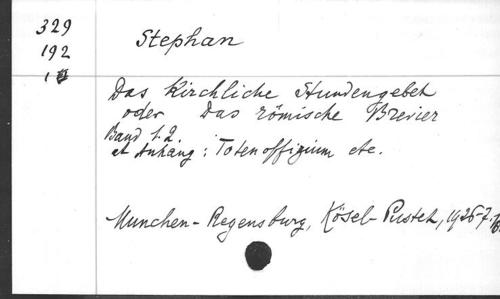 329
192
1
Stephan
Das Kirchliche Stundengebet
oder Das römische Brevier
Band 1.2
et Anhang : Totenoffizium etc.
Munchen - Regensburg, Kösel - Pustet, 1926-7.